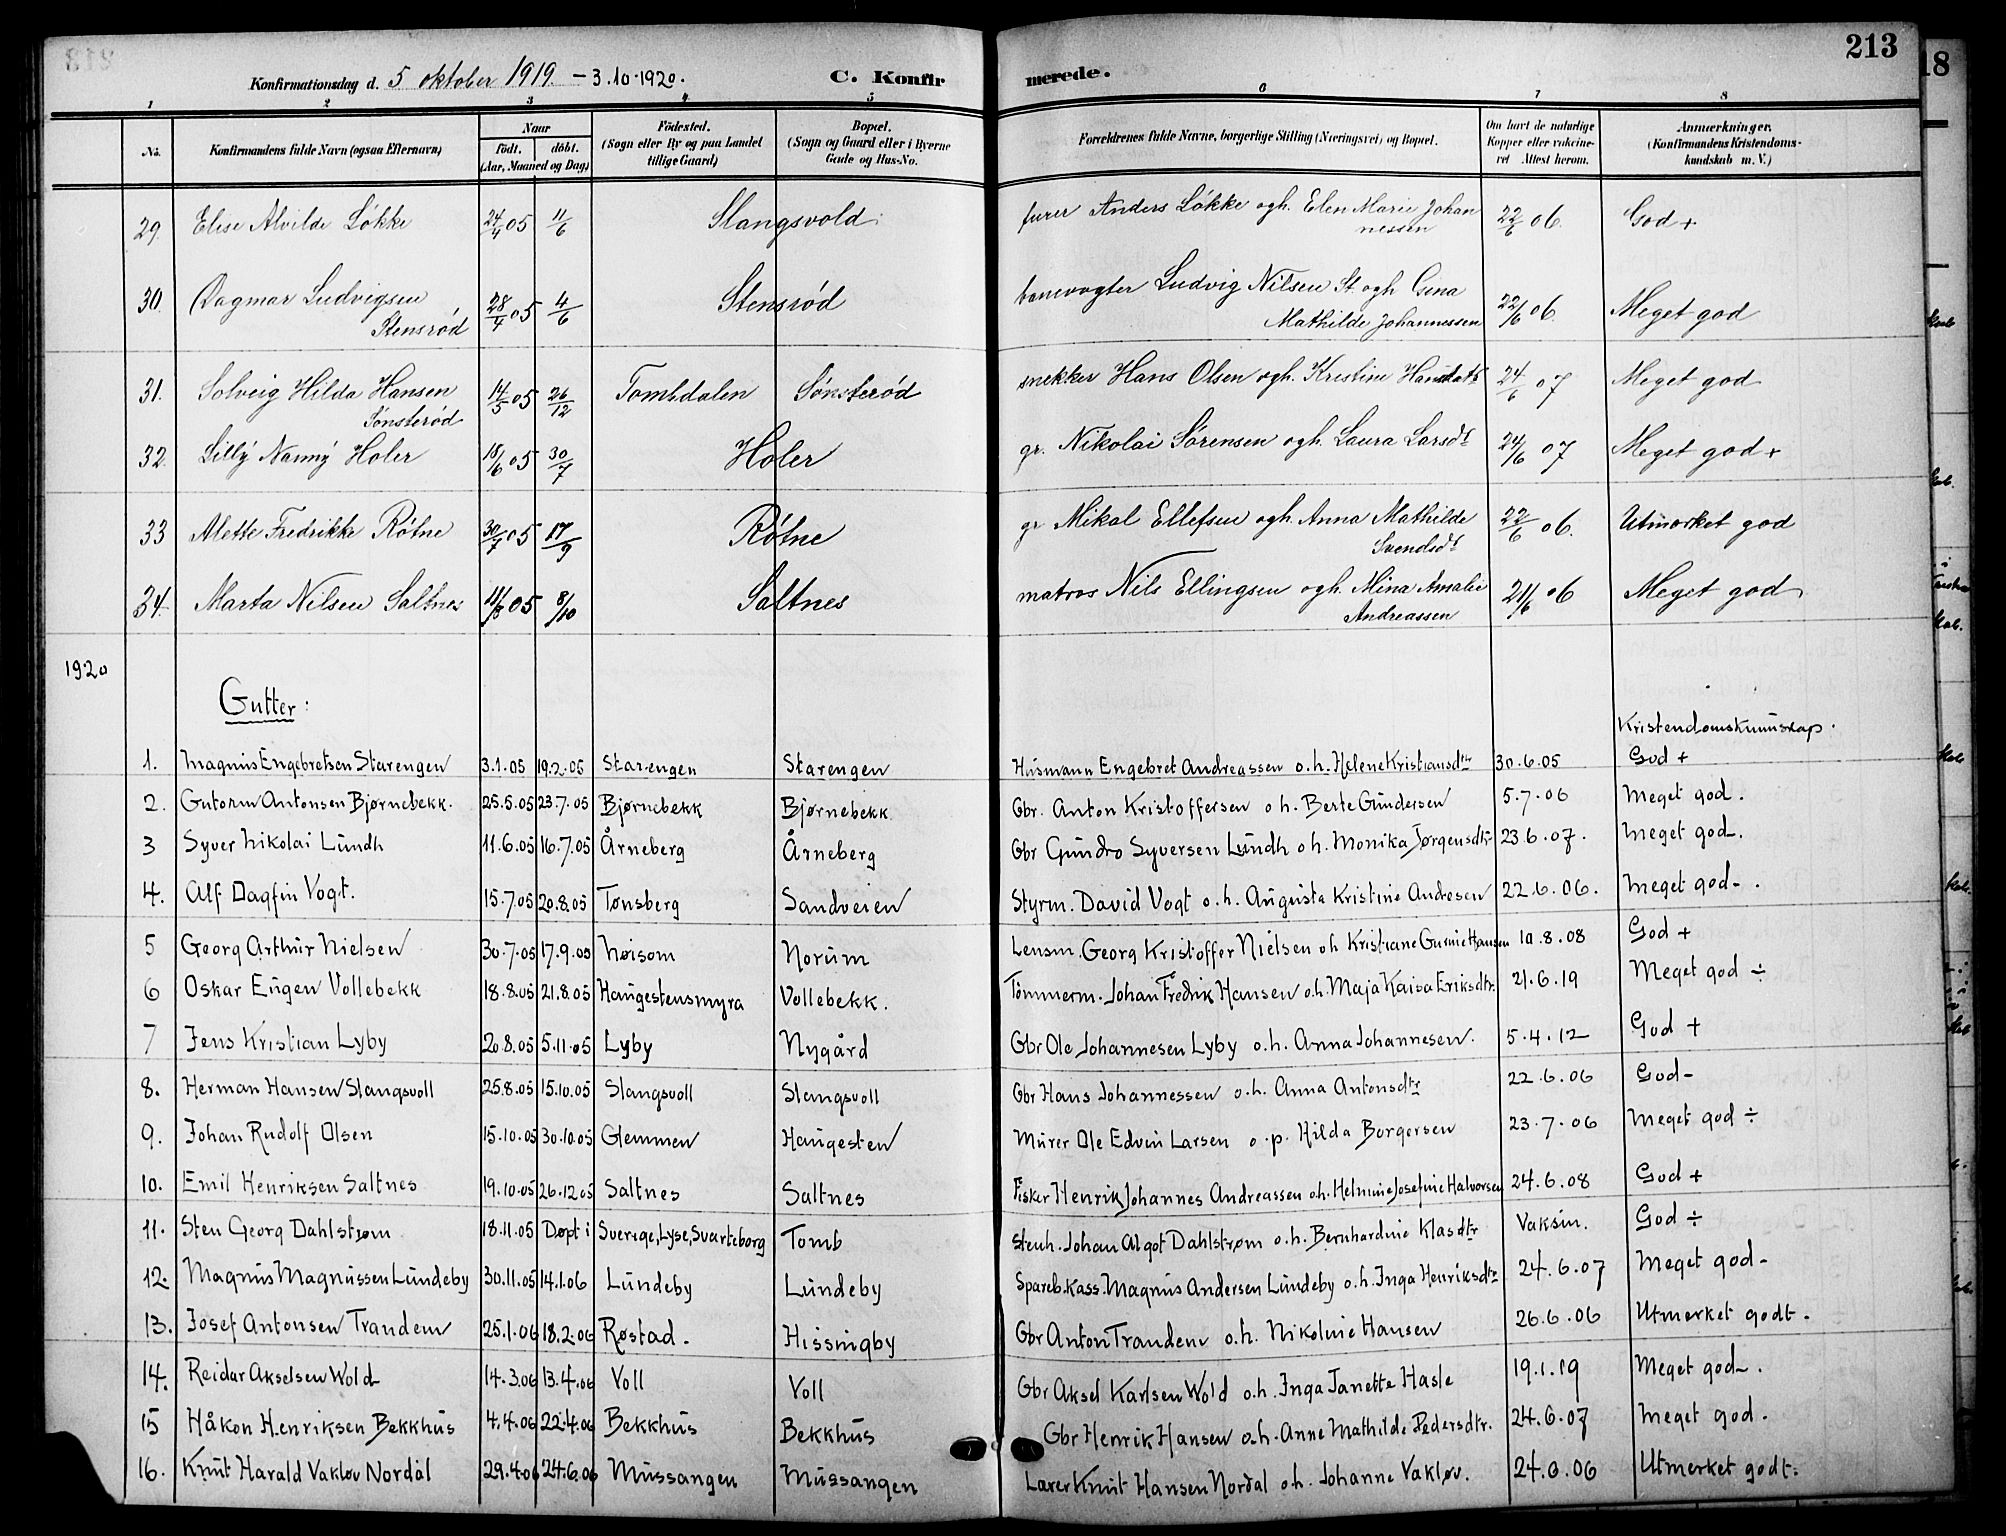 213
Konfirmationsdag d. 5 oktober 1919 – 3.10.1920. C. Konfirmerede.
1 2 3 4 5 6 7 8
No. Konfirmandens fulde Navn (ogsaa Efternavn) Naar født, døbt. (Aar, Maaned og Dag) Fødested. (Sogn eller By og paa Landet tillige Gaard) Bopæl. (Sogn og Gaard eller i Byerne Gade og Hus-No. Forældrenes fulde Navne, borgerlige Stilling (Næringsvei) og Bopæl. Om havt de naturlige Kopper eller vakcineret Attest herom. Anmærkninger. (Konfirmandens Kristendomskundskab m. V.)
29. Elise Alvilde Løkke 24/4 05 11/6 Slangsvold furer Anders Løkke ogh. Elen Marie Johannessen 22/6 06. God +
30. Dagmar Ludvigsen Stensrød 28/4 05 4/6 Stensrød banevogter Ludvig Nilsen St. ogh Gina Mathilde Johannessen 22/6 06. Meget god
31. Solveig Hilda Hansen Sønsterød 14/5 05 26/12 Tombdalen Sønsterød snekker Hans Olsen ogh. Kristine 24/6 07 Meget god
32. Lilly Nanny Holer 18/6 05 30/7 Holer gr. Nikolai Sørensen ogh. Laura Larsdt 24/6 07 Meget god +
33 Alette Fredrikke Røtne 30/7 05 17/9 Røtne gr Mikal Ellefsen ogh Anna Mathilde Svendsdt 22/6 06. Utmørket god
34. Marta Nilsen Saltnes 11/8 05 8/10 Saltnes matros Nils Ellingsen ogh. Mina Amalie Andreassen 21/6 06 Meget god
1920
Gutter:
Kristendomskunnskap.
1. Magnus Engebretsen Starengen 3.1.05 19.2.05 Starengen Starengen Husmann Engebret Andreassen o.h. Helene Kristiansdtr 30.6.05 God +
2. Gutorm Antonsen Bjørnebekk. 25.5.05 23.7.05 Bjørnebekk Bjørnebekk Gbr. Anton Kristoffersen o h. Berte Gundersen 5.7.06 Meget god.
3 Syver Nikolai Lundh 11.6.05 16.7.05 Årneberg Årneberg Gbr Gundro Syversen Lundh o h. Monika Jørgensdtr 23.6.07. Meget god.
4. Alf Dagfin Vogt. 15.7.05 20.8.05 Tønsberg Sandveien Styrm. David Vogt o.h. Augusta Kristine Andresen 22.6.06. Meget god-.
5 Georg Arthur Nielsen 30.7.05 17.9.05 Høisom Norum Lensm. Georg Kristoffer Nielsen o h Kristiane Gurine Hansen 10.8.08 God +
6 Oskar Eugen Vollebekk 18.8.05 21.8.05 Haugestensmyra Vollebekk. Tømmerm. Johan Fredrik Hansen o.h. Maja Kaisa Eriksdtr. 21.6.19 Meget god ÷
7 Jens Kristian Lyby 20.8.05 5.11.05 Lyby Nygård Gbr Ole Johannesen Lyby o.h. Anna Johannesen. 5.4.12 God +
8. Herman Hansen Slangsvoll 25.8.05 15.10.05 Slangsvoll Slangsvoll Gbr Hans Johannessen o.h. Anna Antonsdtr 22.6.06 God-
9. Johan Rudolf Olsen 15.10.05 30.10.05 Glemmen Haugesten Murer Ole Edvin Larsen o.p. Hilda Borgersen 23.7.06 Meget god ÷
10. Emil Henriksen Saltnes 19.10.05 26.12.05 Saltnes Saltnes Fisker Henrik Johannes Andreassen o.h. Helmine Josefine Halvorsen 24.6.08 God +
11. Sten Georg Dahlstrøm 18.11.05 Døpt i Sverige, Lyse, Svarteborg Tomb Stenh. Johan Algot Dahlstrøm o.h. Bernhardine Klasdtr Vaksin. God ÷
12. Magnus Magnussen Lundeby 30.11.05 14.1.06 Lundeby Lundeby Spareb.kass. Magnus Andersen Lundeby o.h. Inga Henriksdtr 24.6.07 Meget god-
13. Josef Antonsen Trandem 25.1.06 18.2.06 Røstad. Hissingby Gbr Anton Trandem o.h. Nikoline Hansen 26.6.06 Utmerket godt.
14. Reidar Akselsen Wold 14.3.06 13.4.06 Voll Voll Gbr Aksel Karlsen Wold o.h. Inga Janette Hasle 19.1.19 Meget god-.
15 Håkon Henriksen Bekkhus 4.4.06 22.4.06 Bekkhus Bekkhus Gbr Henrik Hansen o.h. Anne Mathilde Pedersdtr. 24.6.07 Meget god.
16. Knut Harald Vakløv Nordal 29.4.06 24.6.06 Mussangen Mussangen Lærer Knut Hansen Nordal o.h. Johanne Vakløv. 24.6.06 Utmerket godt.